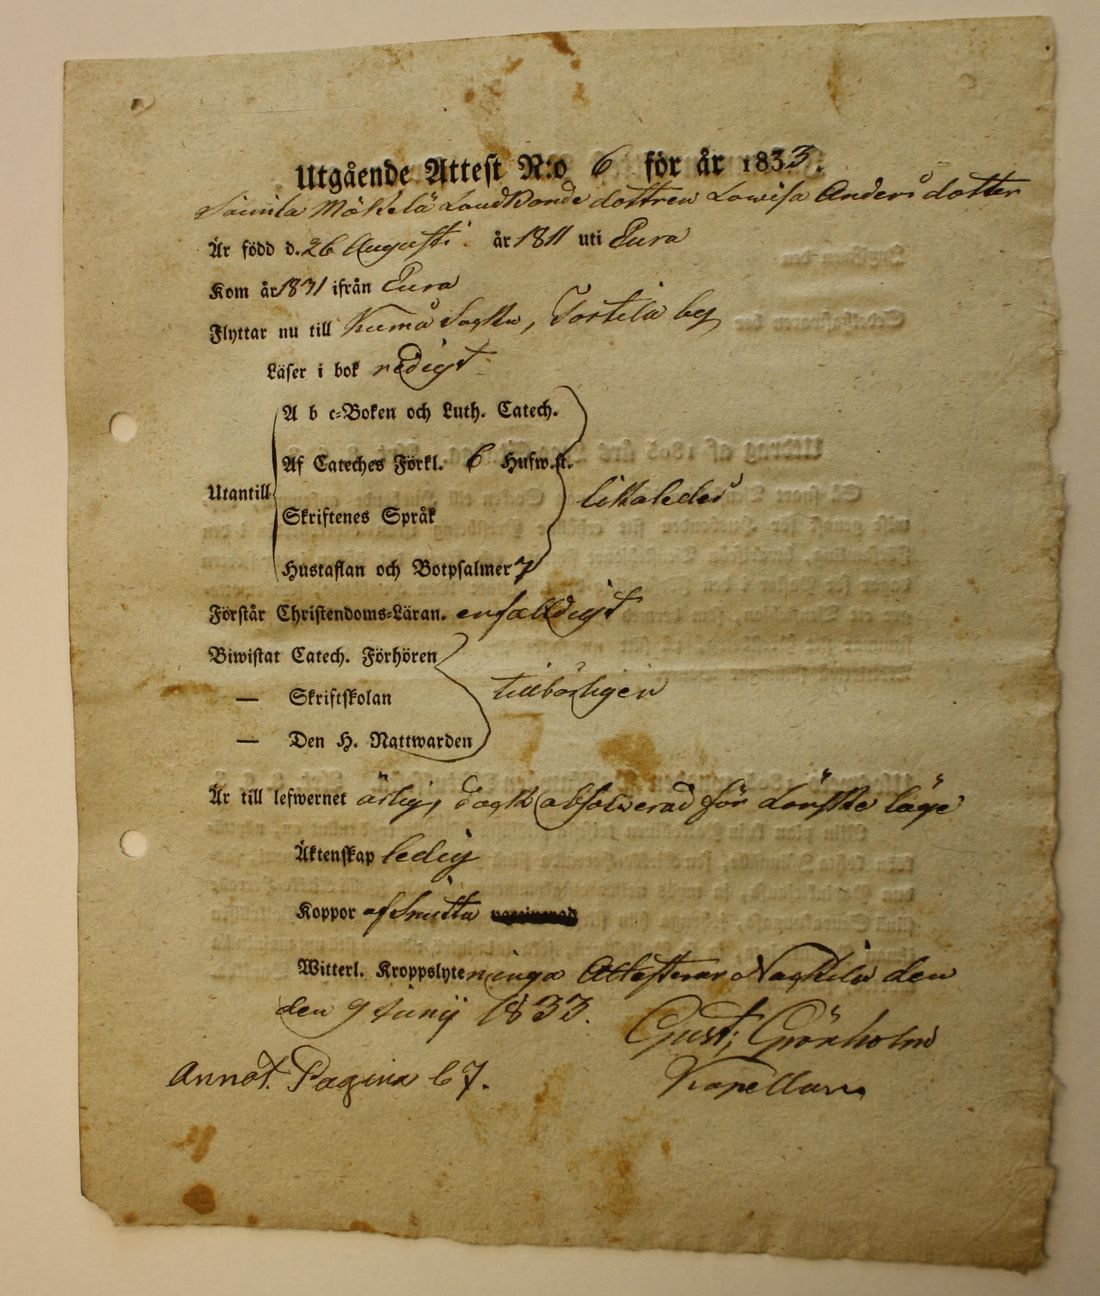 Utgående Attest N:o 6 för år 1833.
Sännila Mäkelä Landbonde dottren Lowisa Anders dotter
Är född d. 26 Augusti år 1811 uti Eura
Kom år 1831 ifrån Eura
Flyttar nu till Kumå Sockn, Torttila by
Läser i bok redigt
A b c-Boken och Luth. Catech.
Af Cateches Förkl. 6 Hufw.st.
Utantill likaledes
Skriftenes Språk
Hustaflan och Botpsalmer 7
Förstår Christendoms-Läran. enfalldigt
Biwistat Catech. Förhören
— Skriftskolan tillbörligen
— Den H. Nattwarden
Är till lefwernet ärlig, dock absolwerad för Lönske läge
Äktenskap ledig
Koppor af Smitta
Witterl. Kroppslyte ninga Attesterar Nackila den
den 9 Junij 1833.
Gust; Grönholm
Annot. Pagina 67.
Kapellan